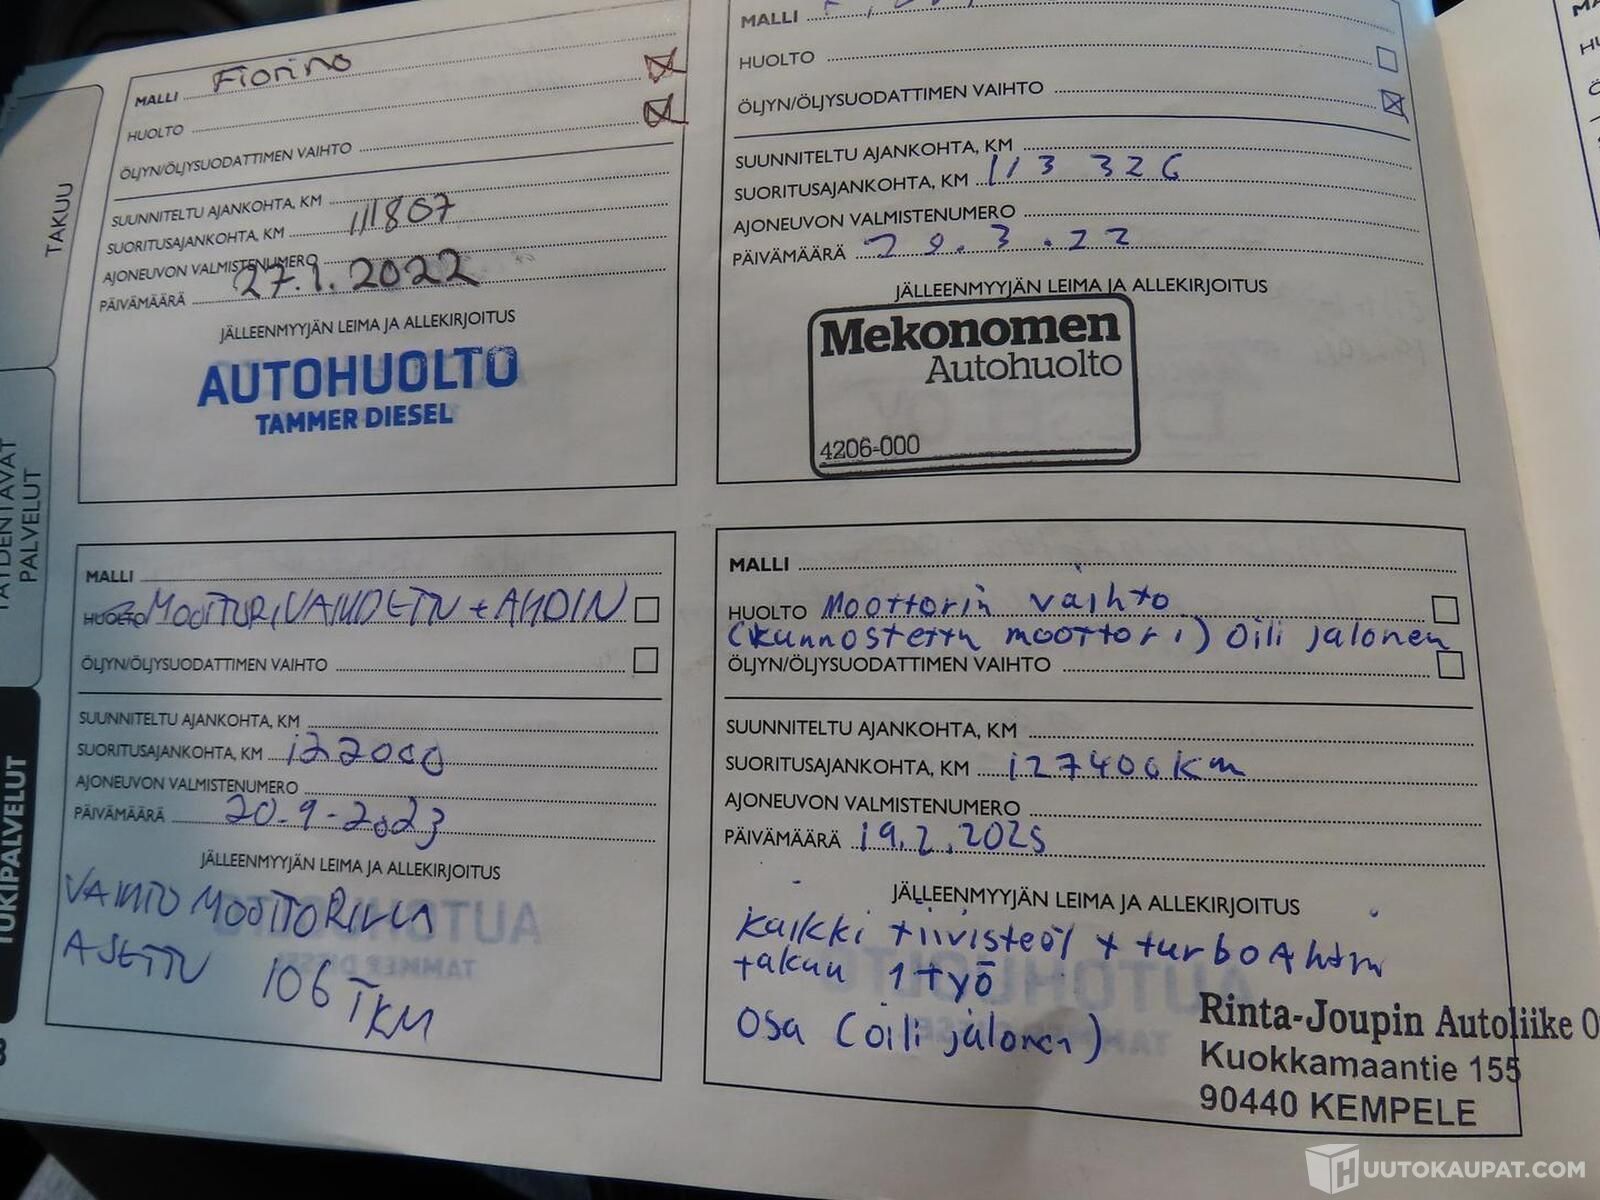 TAKUU
TÄYDENTÄVÄT
PALVELUT
TUKIPALVELUT
MALLI Fiorino
HUOLTO
ÖLJYN/ÖLJYSUODATTIMEN VAIHTO
SUUNNITELTU AJANKOHTA, KM
SUORITUSAJANKOHTA, KM 111807
AJONEUVON VALMISTENUMERO
PÄIVÄMÄÄRÄ 27.1.2022
JÄLLEENMYYJÄN LEIMA JA ALLEKIRJOITUS
AUTOHUOLTO
TAMMER DIESEL
MALLI
HUOLTO
ÖLJYN/ÖLJYSUODATTIMEN VAIHTO
SUUNNITELTU AJANKOHTA, KM
SUORITUSAJANKOHTA, KM 113 326
AJONEUVON VALMISTENUMERO
PÄIVÄMÄÄRÄ 29.3.22
JÄLLEENMYYJÄN LEIMA JA ALLEKIRJOITUS
Mekonomen
Autohuolto
4206-000
MALLI
HUOLTO MOOTTORI VAIHDETTU + AHDIN
ÖLJYN/ÖLJYSUODATTIMEN VAIHTO
SUUNNITELTU AJANKOHTA, KM
SUORITUSAJANKOHTA, KM 122000
AJONEUVON VALMISTENUMERO
PÄIVÄMÄÄRÄ 20.9-2023
JÄLLEENMYYJÄN LEIMA JA ALLEKIRJOITUS
VAIHTO MOOTTORILLA
AJETTU 106 TKM
MALLI
HUOLTO Moottorin vaihto
(kunnostettu moottori) Oili jalonen
ÖLJYN/ÖLJYSUODATTIMEN VAIHTO
SUUNNITELTU AJANKOHTA, KM
SUORITUSAJANKOHTA, KM 127400km
AJONEUVON VALMISTENUMERO
PÄIVÄMÄÄRÄ 19.2.2025
JÄLLEENMYYJÄN LEIMA JA ALLEKIRJOITUS
kaikki tiivisteöt + turboAhtin
takuu 1 työ
Osa (oili jalonen)
Rinta-Joupin Autoliike
Kuokkamaantie 155
90440 KEMPELE
HUUTOKAUPAT.COM